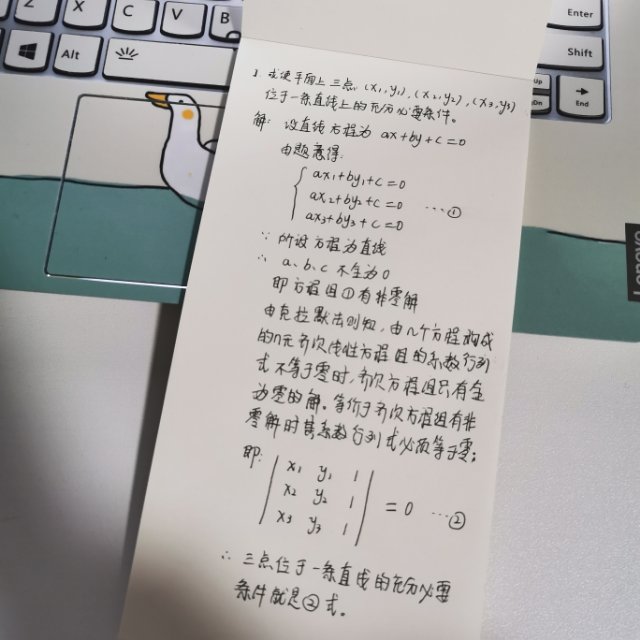 Z X C V B
Enter
Alt
Shift
Up
End
Lenovo
1. 求使平面上三点 (x₁,y₁), (x₂,y₂), (x₃,y₃)
位于一条直线上的充分必要条件。
解: 设直线方程为 ax+by+c=0
由题意得:
ax₁+by₁+c=0
ax₂+by₂+c=0 …①
ax₃+by₃+c=0
∵ 所设方程为直线
∴ a、b、c 不全为0
即方程组①有非零解
由克拉默法则知, 由n个方程构成
的n元齐次线性方程组的系数行列
式不等于零时, 齐次方程组只有全
为零的解。等价于齐次方程组有非
零解时其系数行列式必须等于零;
即:
x₁ y₁ 1
x₂ y₂ 1 = 0 …②
x₃ y₃ 1
∴ 三点位于一条直线的充分必要
条件就是②式。